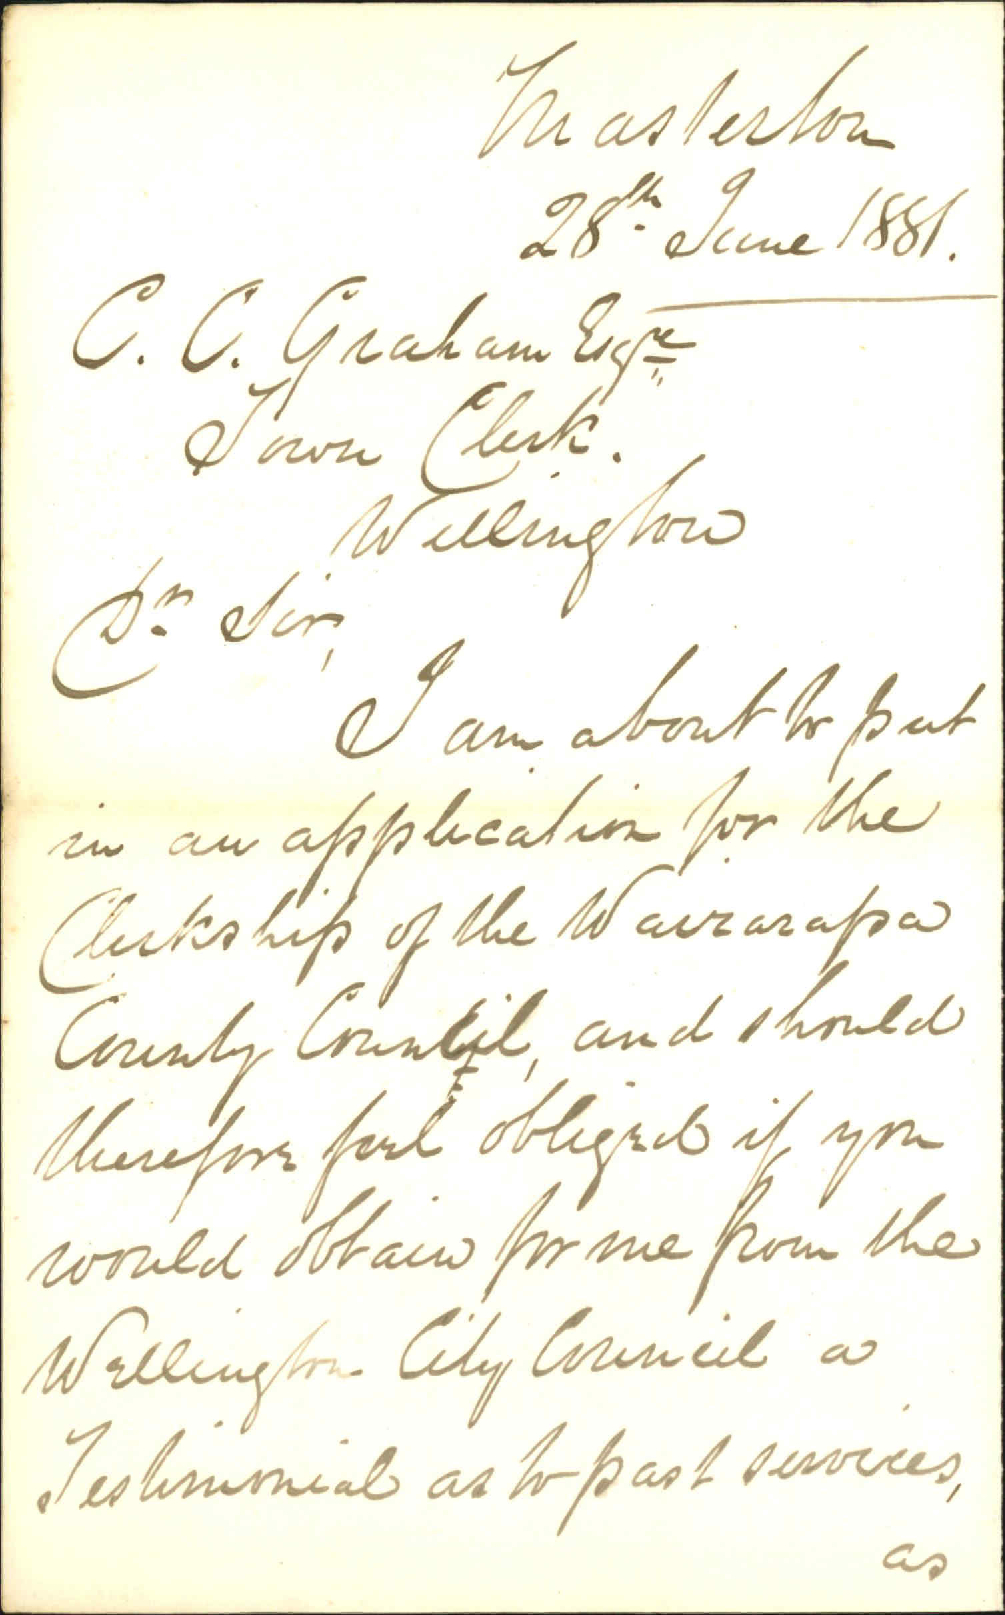 Masterton
28th June 1881.
C. C. Graham Esqre
Town Clerk.
Wellington
Dr Sir,
I am about to put
in an application for the
Clerkship of the Wairarapa
County Council, and should
therefore feel obliged if you
would obtain for me from the
Wellington City Council a
Testimonial as to past services,
as